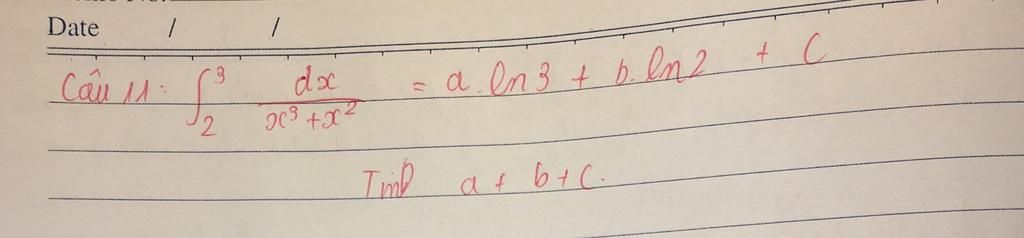 Date / /
Câu 11: ∫₂³ dx/(x³+x²) = a.ln3 + b.ln2 + C
Tính a + b + C.